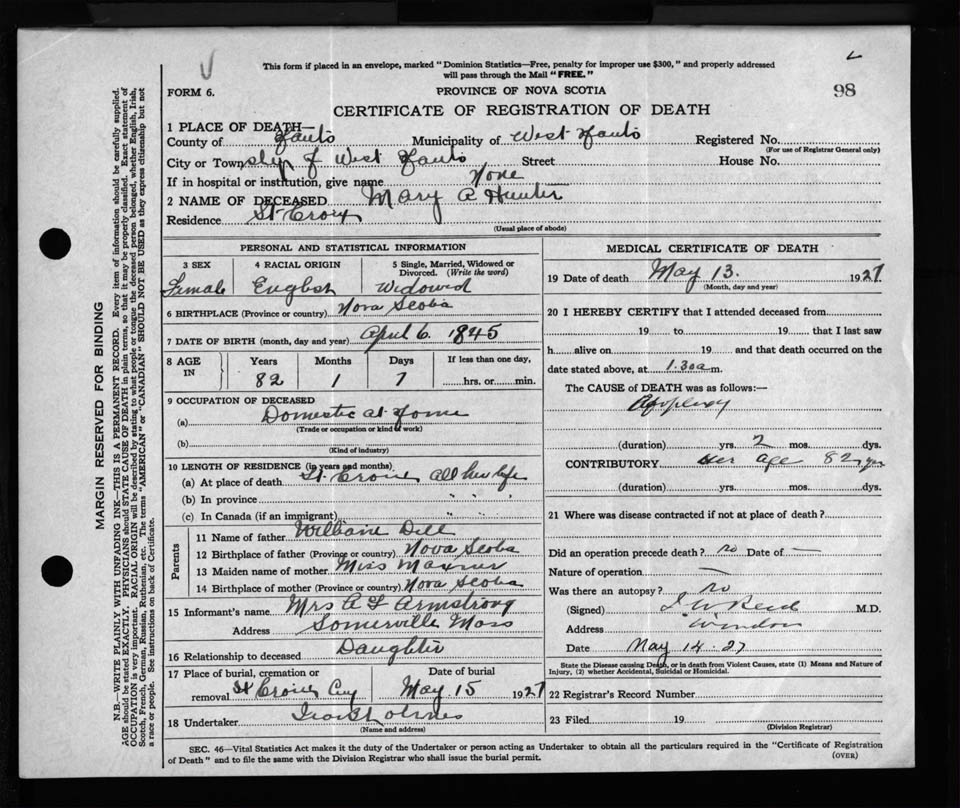 This form if placed in an envelope, marked "Dominion Statistics—Free, penalty for improper use $300," and properly addressed
will pass through the Mail "FREE."
FORM 6.
PROVINCE OF NOVA SCOTIA
98
CERTIFICATE OF REGISTRATION OF DEATH
1 PLACE OF DEATH—
County of Hants Municipality of West Hants Registered No.
(For use of Registrar General only)
City or Town ship of West Hants Street House No.
If in hospital or institution, give name None
2 NAME OF DECEASED Mary A Hunter
Residence St Croix
(Usual place of abode)
PERSONAL AND STATISTICAL INFORMATION
3 SEX 4 RACIAL ORIGIN 5 Single, Married, Widowed or Divorced. (Write the word)
Female English Widowed
6 BIRTHPLACE (Province or country) Nova Scotia
7 DATE OF BIRTH (month, day and year) April 6. 1845
8 AGE IN Years Months Days If less than one day,
82 1 7 hrs. or min.
9 OCCUPATION OF DECEASED
(a) Domestic at Home
(Trade or occupation or kind of work)
(b)
(Kind of industry)
10 LENGTH OF RESIDENCE (in years and months)
(a) At place of death St. Croix all her life
(b) In province " " "
(c) In Canada (if an immigrant) " " "
Parents
11 Name of father William Dill
12 Birthplace of father (Province or country) Nova Scotia
13 Maiden name of mother Miss
14 Birthplace of mother (Province or country) Nova Scotia
15 Informant's name Mrs A F Armstrong
Address Somerville Mass
16 Relationship to deceased Daughter
17 Place of burial, cremation or removal St Croix Date of burial May 15 1927
18 Undertaker Holmes
(Name and address)
MEDICAL CERTIFICATE OF DEATH
19 Date of death May 13. 1927
(Month, day and year)
20 I HEREBY CERTIFY that I attended deceased from
19 to 19 that I last saw
h alive on 19 and that death occurred on the
date stated above, at 1.30 a m.
The CAUSE of DEATH was as follows:—
Apoplexy
(duration) yrs. 2 mos. dys.
CONTRIBUTORY Her age 82 yrs
(duration) yrs. mos. dys.
21 Where was disease contracted if not at place of death?
Did an operation precede death? no Date of —
Nature of operation —
Was there an autopsy? no
(Signed) J W Reid M.D.
Address Windsor
Date May 14. 27
State the Disease causing Death, or in death from Violent Causes, state (1) Means and Nature of
Injury, (2) whether Accidental, Suicidal or Homicidal.
22 Registrar's Record Number
23 Filed 19
(Division Registrar)
SEC. 46—Vital Statistics Act makes it the duty of the Undertaker or person acting as Undertaker to obtain all the particulars required in the "Certificate of Registration
of Death" and to file the same with the Division Registrar who shall issue the burial permit.
(OVER)
MARGIN RESERVED FOR BINDING
N.B.—WRITE PLAINLY, WITH UNFADING INK—THIS IS A PERMANENT RECORD. Every item of information should be carefully supplied.
AGE should be stated EXACTLY. PHYSICIANS should STATE CAUSE OF DEATH in plain terms, so that it may be properly classified. Exact statement of
OCCUPATION is very important. RACIAL ORIGIN will be described by stating to what people or tongue the deceased person belonged, whether English, Irish,
Scotch, French, German, Russian, Ruthenian, etc. The terms "AMERICAN" or "CANADIAN" SHOULD NOT BE USED as they express citizenship but not
a race or people. See instructions on back of Certificate.